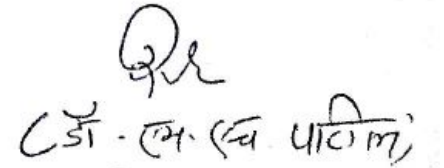 (डॉ. एम. एच. पाटील)